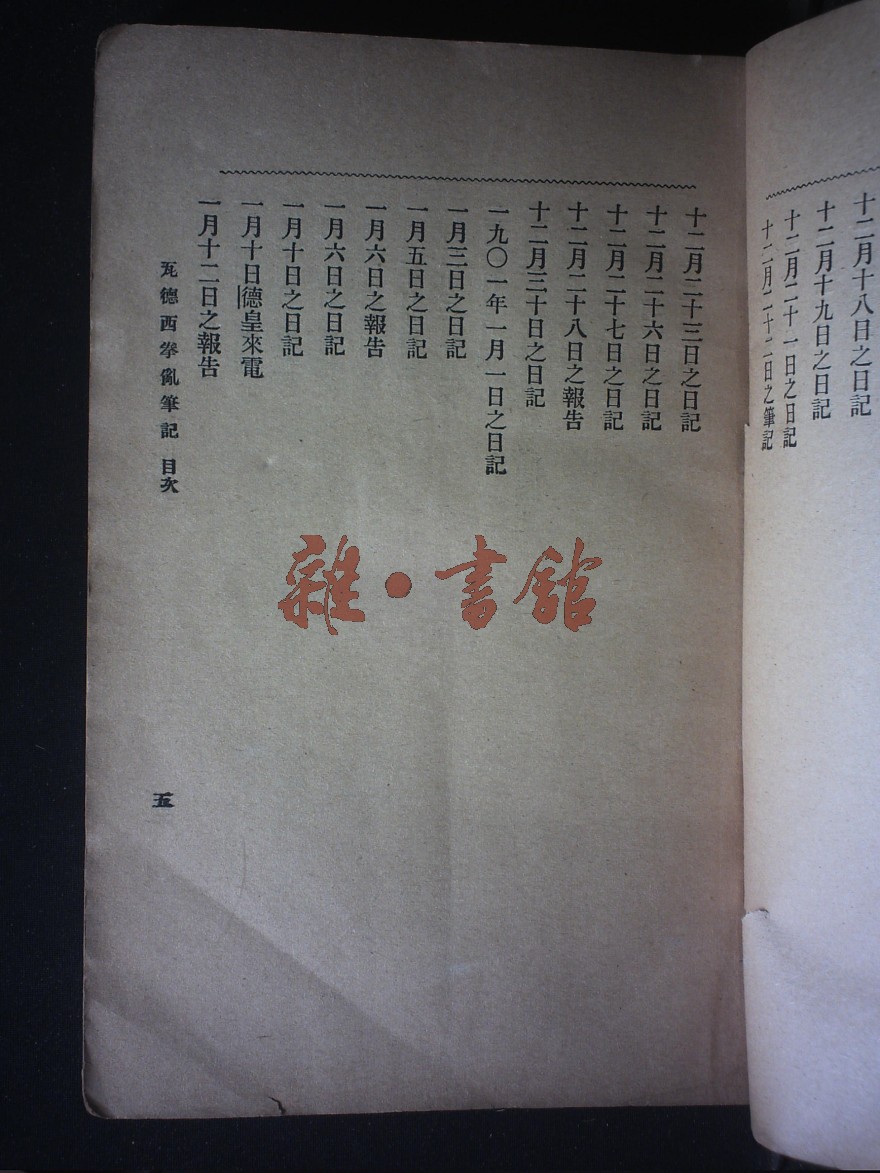 十二月十八日之日記
十二月十九日之日記
十二月二十一日之日記
十二月二十二日之筆記
十二月二十三日之日記
十二月二十六日之日記
十二月二十七日之日記
十二月二十八日之報告
十二月三十日之日記
一九〇一年一月一日之日記
一月三日之日記
一月五日之日記
一月六日之報告
一月六日之日記
一月十日之日記
一月十日德皇來電
一月十二日之報告
瓦德西拳亂筆記 目次
五
雜·書館